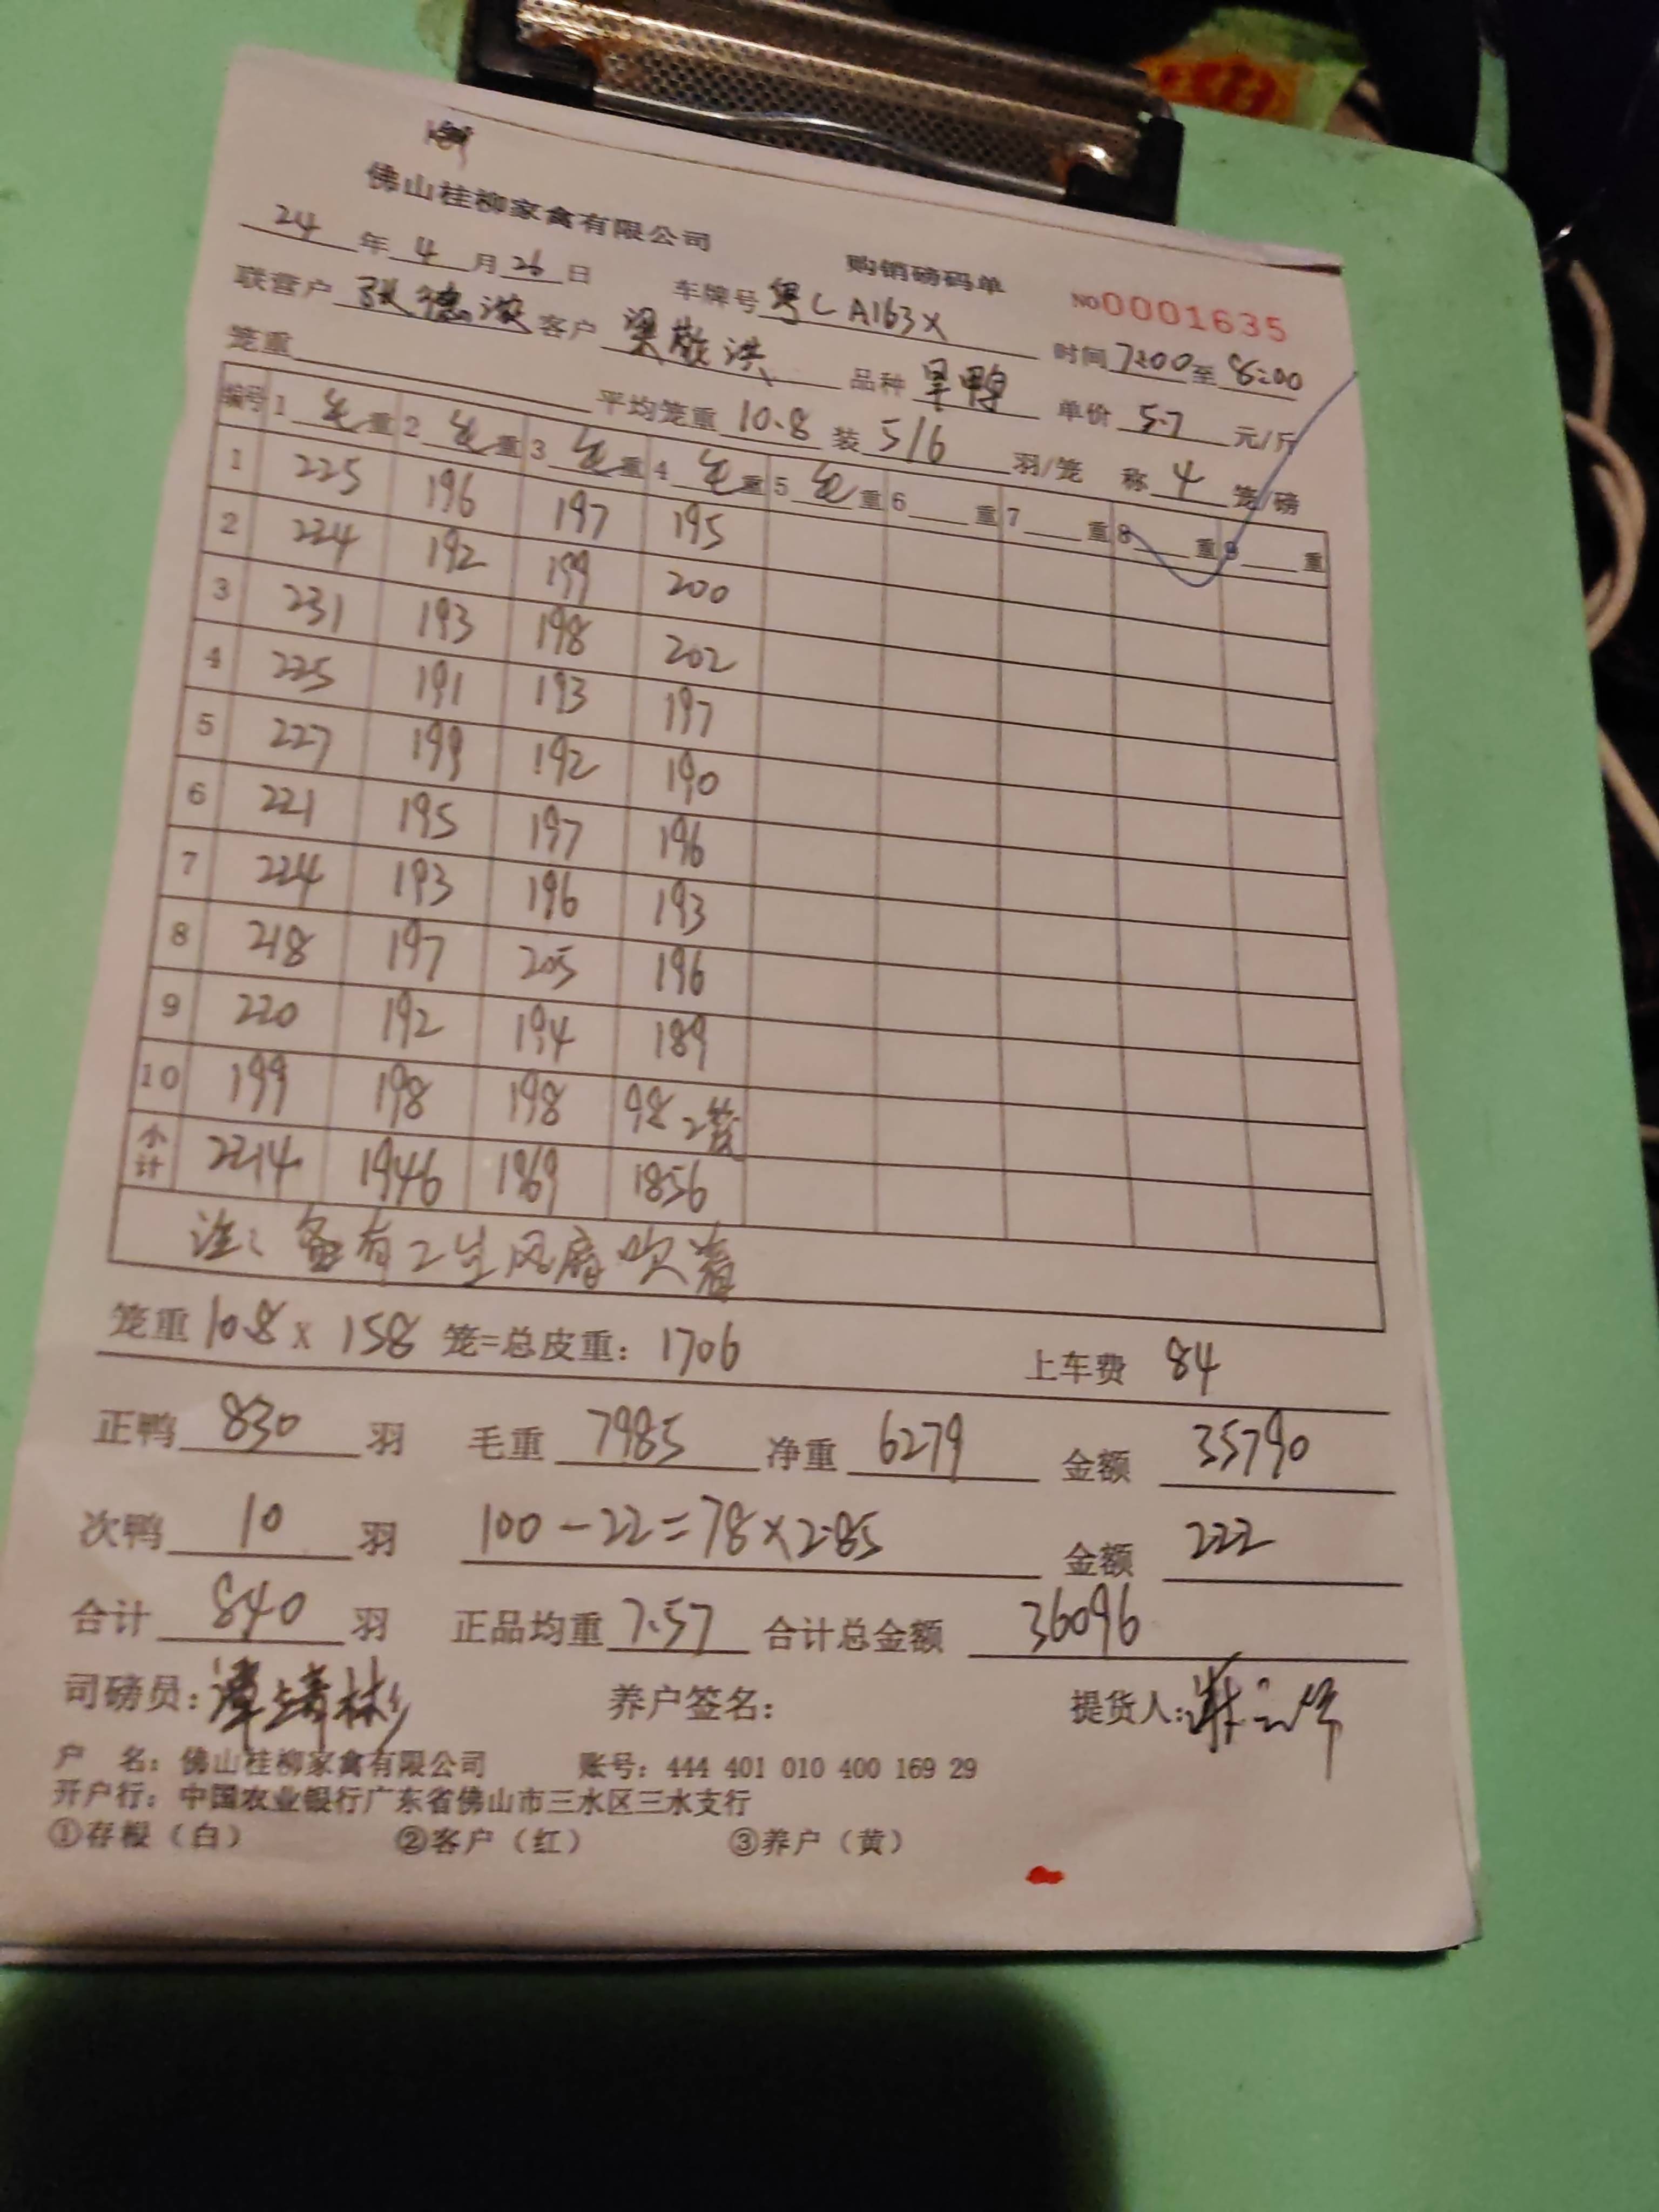 佛山桂柳家禽有限公司 购销磅码单
24年4月26日 车牌号粤LA163X NO0001635
联营户张德波 客户梁敬洪 品种旱鸭 时间7:00至8:00
笼重 平均笼重10.8 装5/6羽/笼 单价5.7元/斤
称4笼/磅
编号 1毛重 2毛重 3毛重 4毛重 5毛重 6重 7重 8重 9重
1 225 196 197 195
2 224 192 199 200
3 231 193 198 202
4 225 191 193 197
5 227 199 192 190
6 221 195 197 196
7 224 193 196 193
8 218 197 205 196
9 220 192 194 189
10 199 198 198 98 2笼
小计 2214 1946 1969 1856
注: 备有2生风扇吹着
笼重10.8×158笼=总皮重: 1706 上车费 84
正鸭830羽 毛重7985 净重6279 金额35790
次鸭10羽 100-22=78×2.85 金额222
合计840羽 正品均重7.57 合计总金额36096
司磅员:谭靖彬 养户签名: 提货人:
户 名: 佛山桂柳家禽有限公司 账号: 444 401 010 400 169 29
开户行: 中国农业银行广东省佛山市三水区三水支行
①存根(白) ②客户(红) ③养户(黄)